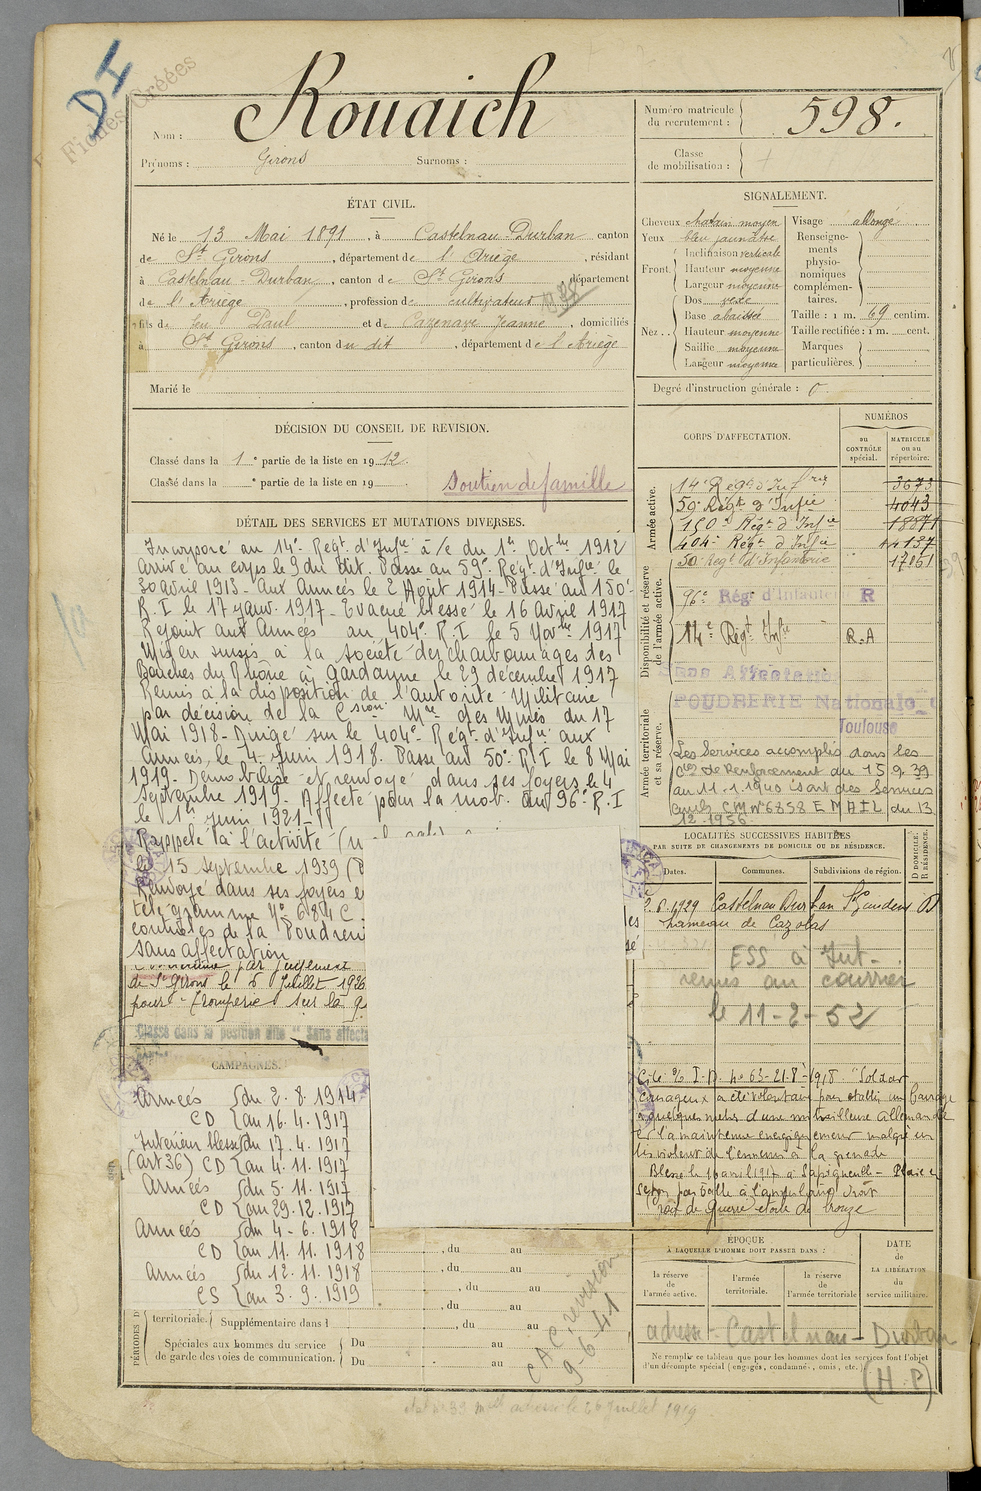 DI
Fiches Créées
Nom : Rouaich
Prénoms : Girons Surnoms :
Numéro matricule du recrutement : 598.
Classe de mobilisation :
ÉTAT CIVIL.
Né le 13 Mai 1891, à Castelnau-Durban canton
de St Girons, département de l'Ariège, résidant
à Castelnau-Durban, canton de St Girons département
de l'Ariège, profession de cultivateur
fils de feu Paul et de Cazenave Jeanne, domiciliés
à St Girons, canton du dit, département de l'Ariège
Marié le
SIGNALEMENT.
Cheveux chatain moyen
Yeux bleu jaunâtre
Front. Inclinaison verticale
Hauteur moyenne
Largeur moyenne
Nez . . Dos vexe
Base abaissée
Hauteur moyenne
Saillie moyenne
Largeur moyenne
Visage allongé
Renseignements physionomiques complémentaires.
Taille : 1 m. 69 centim.
Taille rectifiée : 1 m. cent.
Marques particulières.
Degré d'instruction générale : 0
DÉCISION DU CONSEIL DE REVISION.
Classé dans la 1e partie de la liste en 1912.
Classé dans la e partie de la liste en 19
Soutien de famille
DÉTAIL DES SERVICES ET MUTATIONS DIVERSES.
Incorporé au 14e Regt. d'Infie à/c du 1er Octbre 1912
arrivé au corps le 9 du dit. Passé au 59e Regt. d'Infie le
30 avril 1913 - Aux Armées le 2 Août 1914 - Passé au 150e
R.I le 17 janv. 1917 - Evacué blessé le 16 Avril 1917
Rejoint aux Armées au 404e R.I le 5 Novbre 1917
Mis en sursis à la société des charbonnages des
Bouches du Rhône à Gardanne le 29 décembre 1917
Remis à la disposition de l'autorité Militaire
par décision de la Csion Mre des Mines du 17
Mai 1918 - Dirigé sur le 404e Regt d'Infie aux
Armées, le 4 Juin 1918. Passé au 50e R.I le 8 Mai
1919 - Démobilisé et renvoyé dans ses foyers le 4
Septembre 1919 - Affecté pour la mob. au 96e R.I
le 1er juin 1921 -
Rappelé à l'activité
le 15 septembre 1939
Renvoyé dans ses foyers
télégramme No 6184 C.
contrôles de la Poudrerie
sans affectation
par jugement
de St Girons le 6 Juillet 1926
pour tromperie sur la
Classé dans la position dite "Sans affecta
CORPS D'AFFECTATION.
NUMÉROS
au CONTRÔLE spécial.
MATRICULE ou au répertoire.
Armée active.
14e Regt d'Infrie 3673
59e Regt d'Infie 4043
150e Regt d'Infie 18871
404e Regt d'Infie 14137
50e Regt d'Infanterie 17051
Disponibilité et réserve de l'armée active.
96e Régt d'Infanterie R
14e Régt Infie R.A
Sans Affectation
Armée territoriale et sa réserve.
POUDRERIE Nationale
Toulouse
Les Services accomplis dans les
Cies de Renforcement du 15.9.39
au 11.1.1940 sont des Services
civils CM No 6858 EMAIL du 13
12.1956.
LOCALITÉS SUCCESSIVES HABITÉES
PAR SUITE DE CHANGEMENTS DE DOMICILE OU DE RÉSIDENCE.
Dates. Communes. Subdivisions de région. D DOMICILE. R RÉSIDENCE.
2.6.1929 Castelnau Durban St Gaudens D
hameau de Cazolas
ESS à Jut-
remis au courrier
le 11-2-52
Cité O/ I.D. No 63-21-8-1918. "Soldat
courageux a été volontaire pour établir un barrage
à quelques mètres d'une mitrailleuse allemande
et l'a maintenue energiquement malgré un
tir violent de l'ennemi à la grenade
Blessé le 16 avril 1917 à Sapigneulle - Plaie
par balle à droit
Croix de Guerre étoile de bronze
CAMPAGNES.
Armées {du 2.8.1914
CD {au 16.4.1917
Intérieur blessé {du 17.4.1917
(art 36) CD {au 4.11.1917
Armées {du 5.11.1917
CD {au 29.12.1917
Armées {du 4-6.1918
CD {au 11.11.1918
Armées {du 12.11.1918
CS {au 3.9.1919
, du au
, du au
, du au
, du au
territoriale. Supplémentaire dans l , du au
Spéciales aux hommes du service de garde des voies de communication. Du au
Du au
CAC revision
9-6-41
ÉPOQUE
À LAQUELLE L'HOMME DOIT PASSER DANS :
la réserve de l'armée active.
l'armée territoriale.
la réserve de l'armée territoriale
DATE de LA LIBÉRATION du service militaire.
adresse - Castelnau-Durban
(H P)
Ne remplir ce tableau que pour les hommes dont les services font l'objet
d'un décompte spécial (engagés, condamnés, omis, etc.).